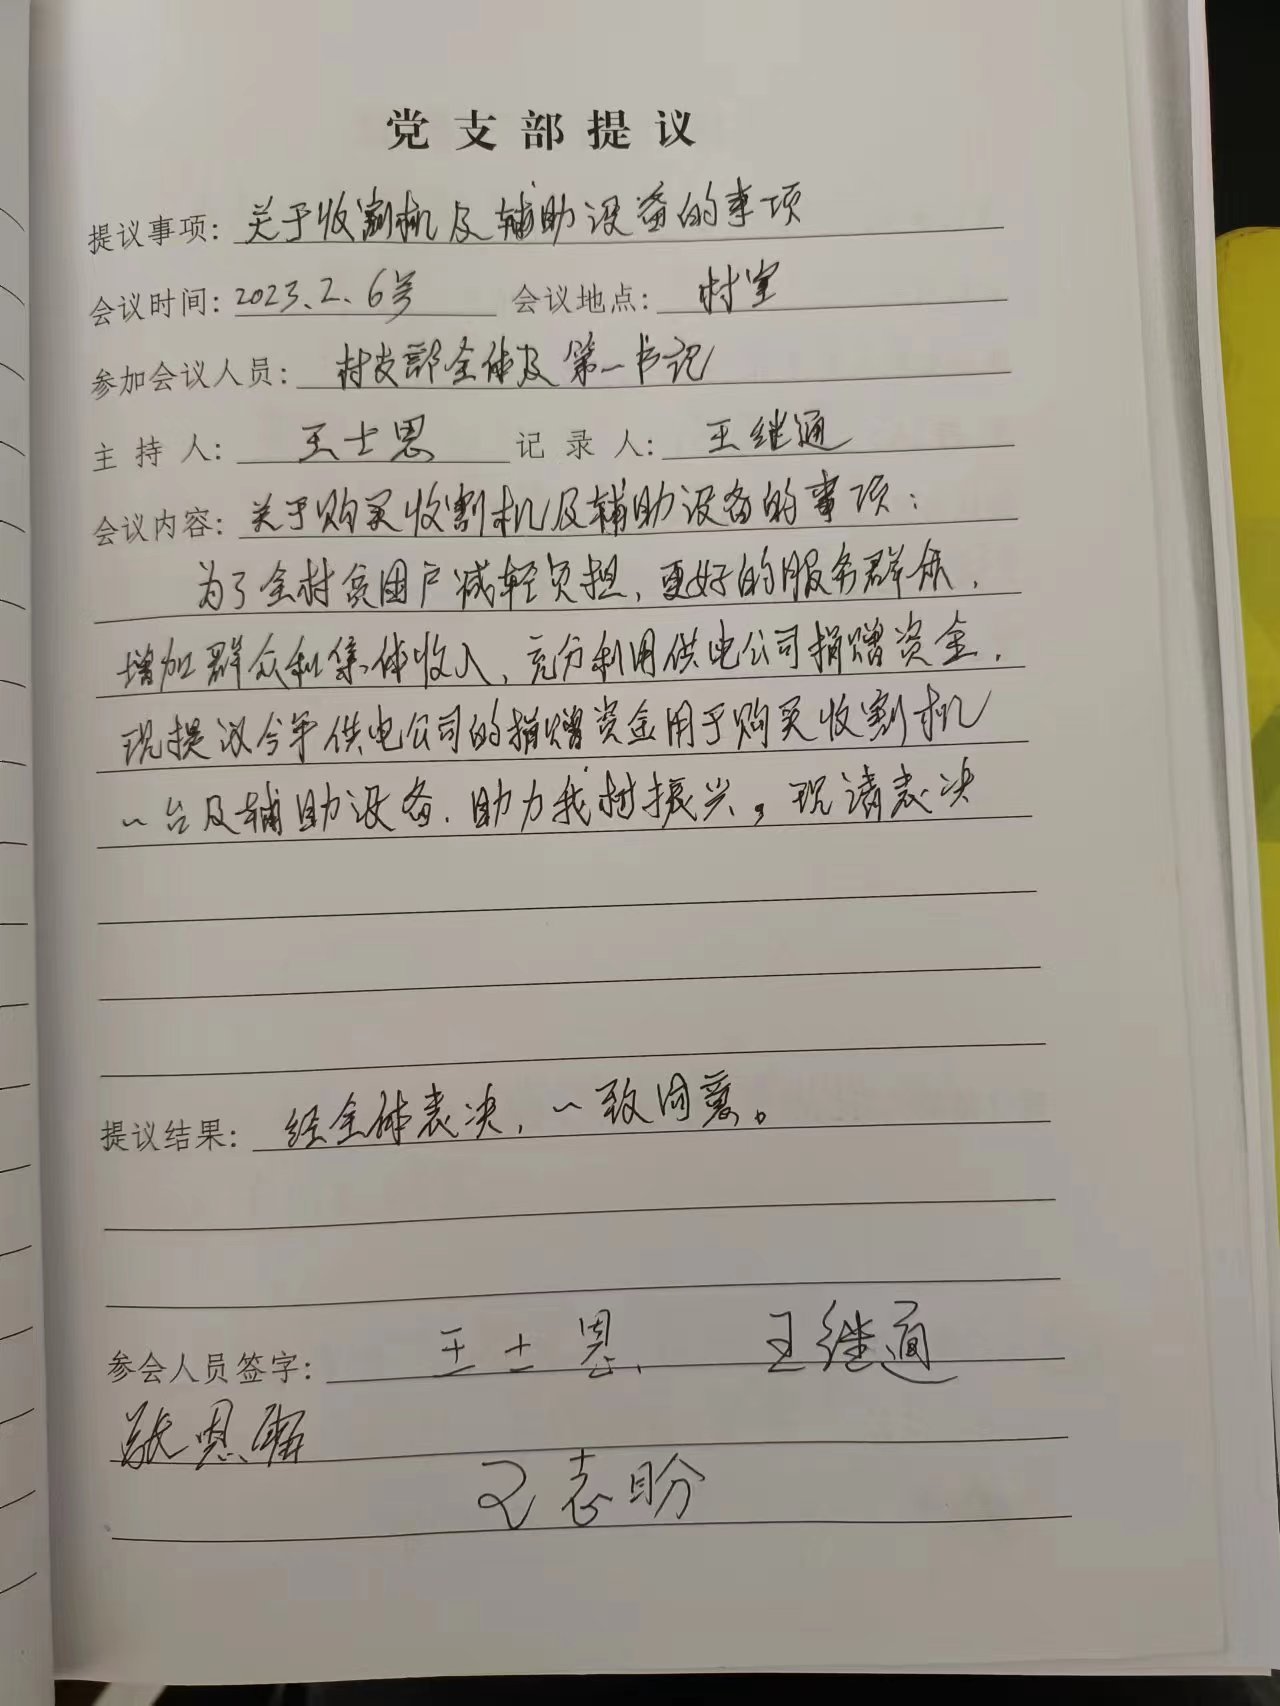 党支部提议
提议事项：关于收割机及辅助设备的事项
会议时间：2023.2.6号 会议地点：村室
参加会议人员：村支部全体及第一书记
主持人：王士恩 记录人：王继通
会议内容：关于购买收割机及辅助设备的事项：
为了全村贫困户减轻负担，更好的服务群众，
增加群众和集体收入，充分利用供电公司捐赠资金，
现提议今年供电公司的捐赠资金用于购买收割机
一台及辅助设备，助力我村振兴。现请表决
提议结果：经全体表决，一致同意。
参会人员签字：王士恩、 王继通
张恩
志盼